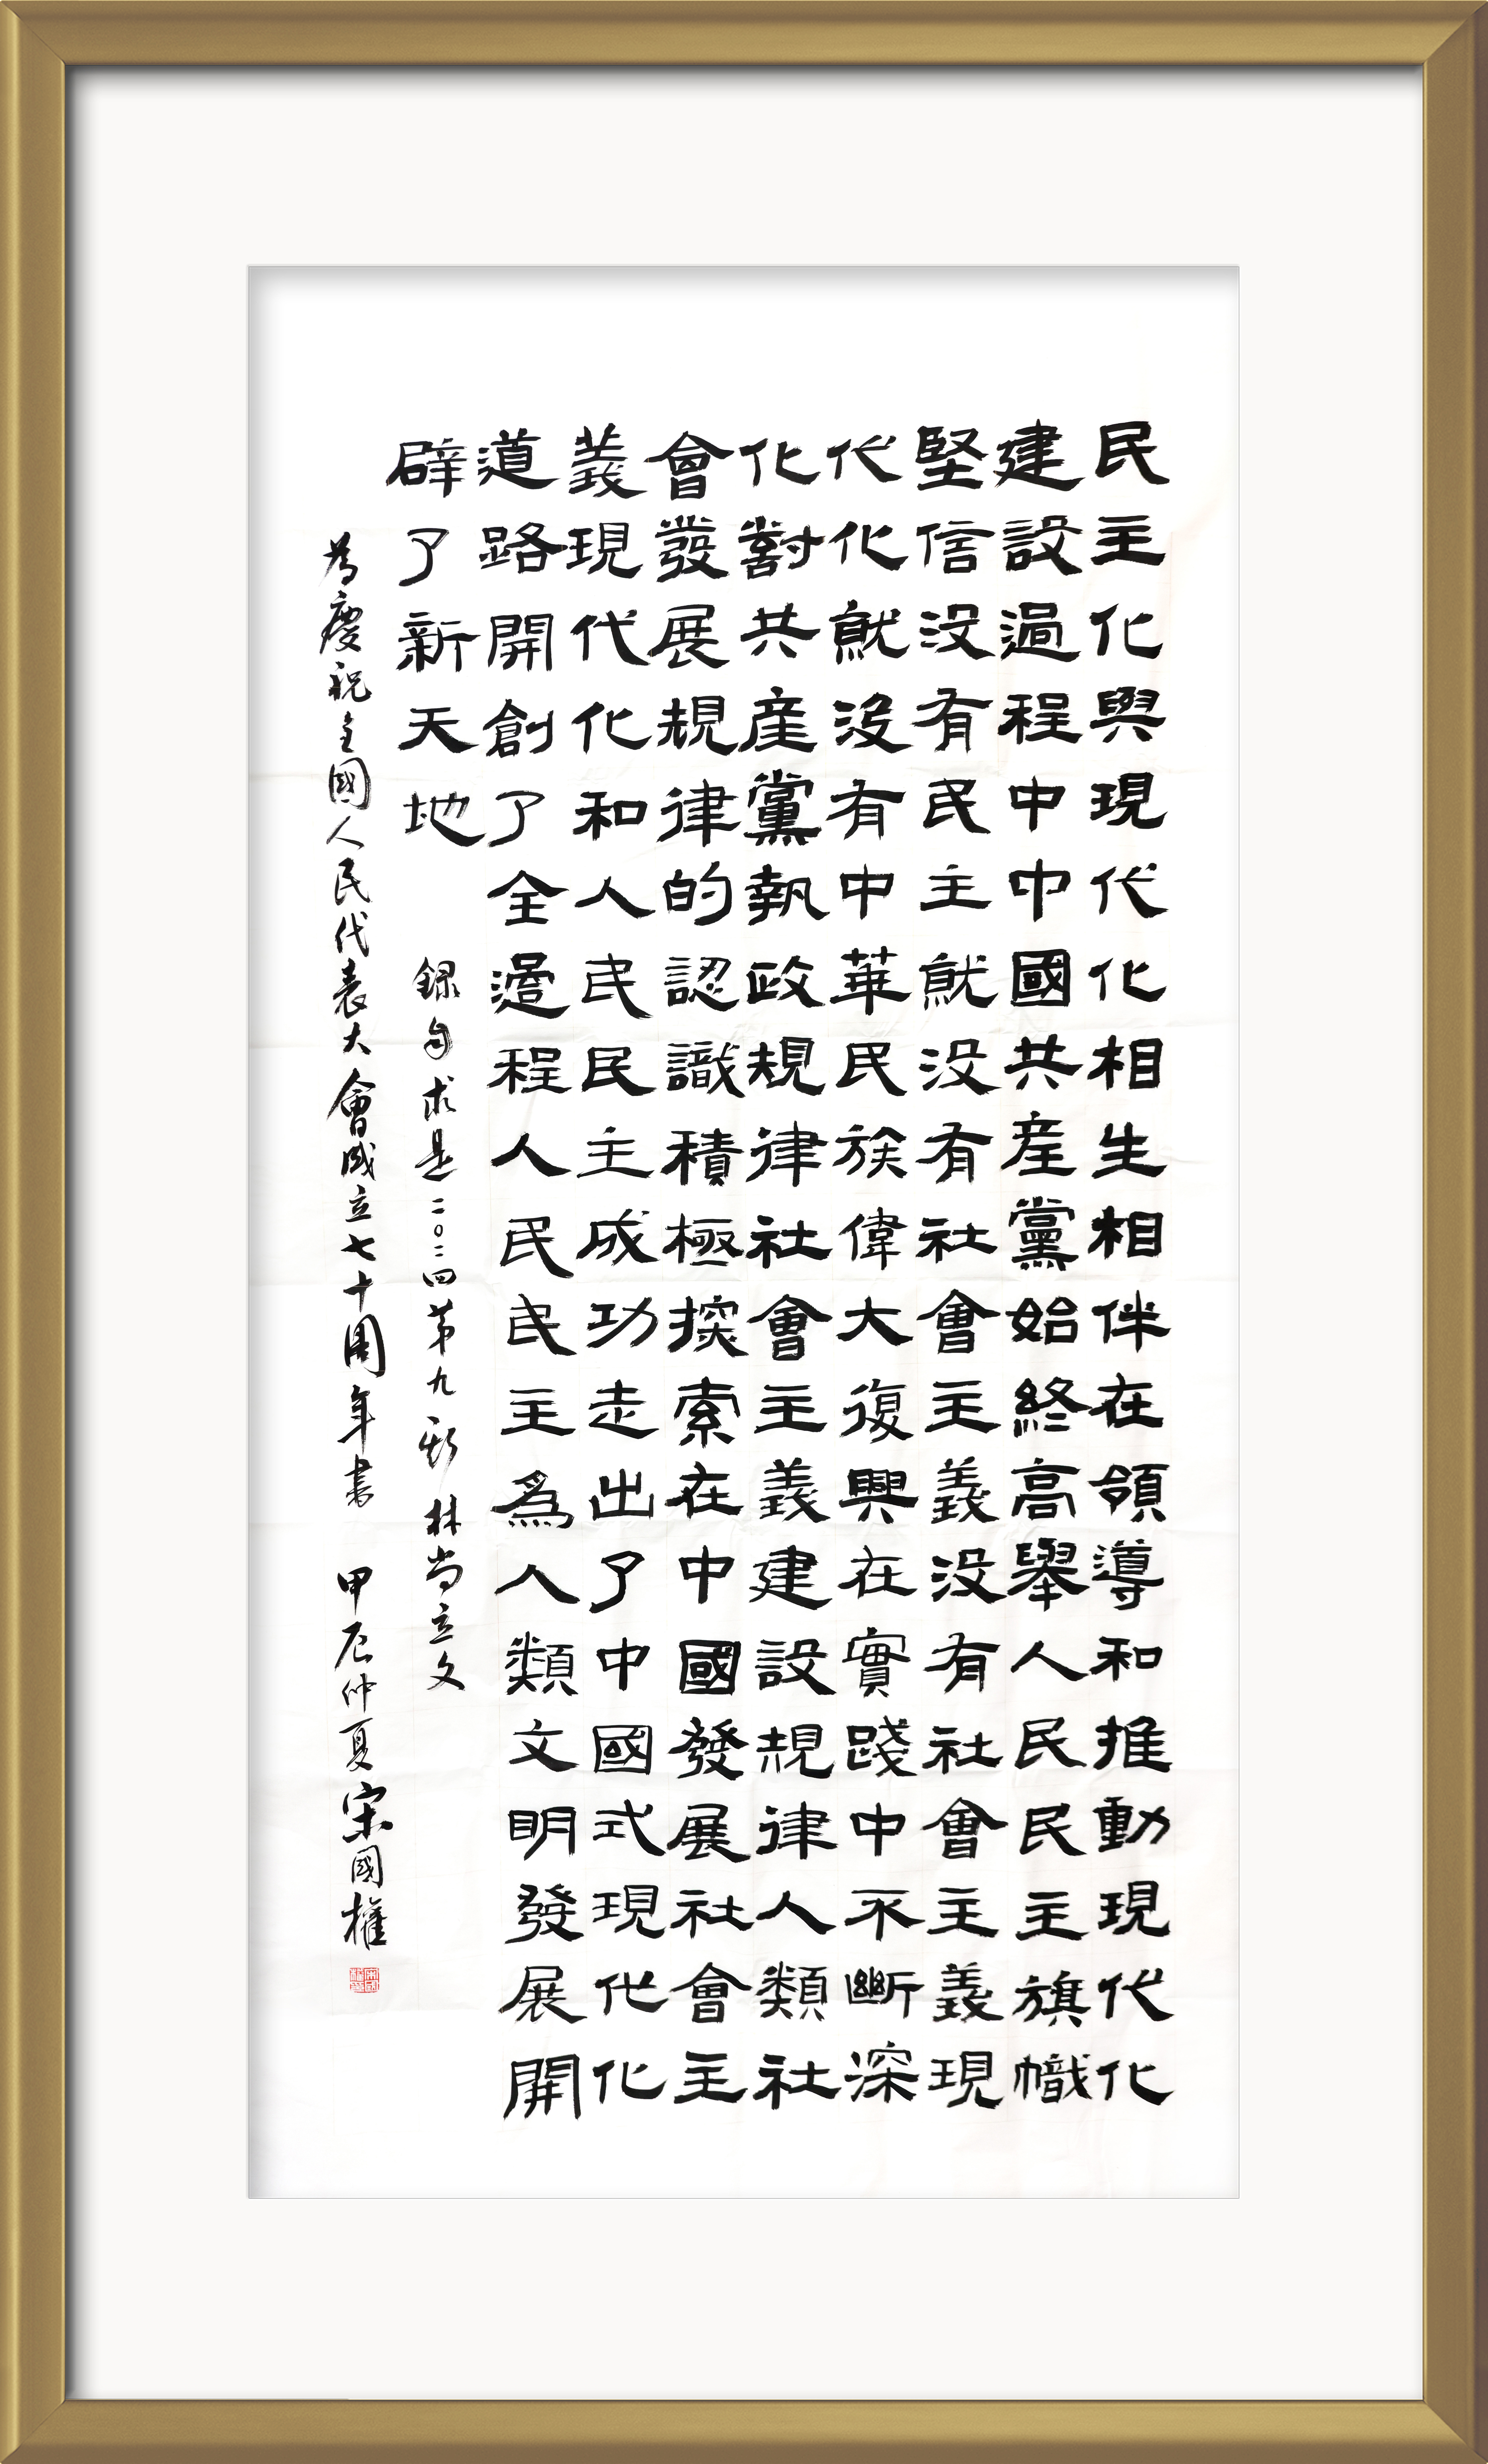 民主化與現代化相生相伴在領導和推動現代化
建設過程中中國共産黨始終高舉人民民主旗幟
堅信没有民主就没有社會主義没有社會主義現
代化就没有中華民族偉大復興在實踐中不斷深
化對共産黨執政規律社會主義建設規律人類社
會發展規律的認識積極探索在中國發展社會主
義現代化和人民民主成功走出了中國式現代化
道路開創了全過程人民民主爲人類文明發展開
辟了新天地
録自求是二〇二四第九期 林尚立文
為慶祝全國人民代表大會成立七十周年書 甲辰仲夏宋國權